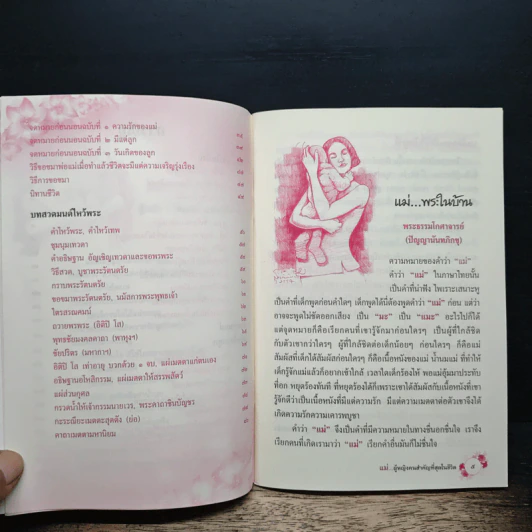 จดหมายก่อนนอนฉบับที่ ๑ ความรักของแม่
จดหมายก่อนนอนฉบับที่ ๒ มีแต่ลูก
จดหมายก่อนนอนฉบับที่ ๓ วันเกิดของลูก
วิธีขอขมาพ่อแม่เมื่อทำแล้วชีวิตจะมีแต่ความเจริญรุ่งเรือง
วิธีการขอขมา
นิทานชีวิต
บทสวดมนต์ไหว้พระ
คำไหว้พระ, คำไหว้เทพ
ชุมนุมเทวดา
คำอธิษฐาน อัญเชิญเทวดาและขอพรพระ
วิธีสวด, บูชาพระรัตนตรัย
กราบพระรัตนตรัย
ขอขมาพระรัตนตรัย, นมัสการพระพุทธเจ้า
ไตรสรณคมน์
ถวายพรพระ (อิติปิ โส)
พุทธชัยมงคลคาถา (พาหุงฯ)
ชัยปริตร (มหากาฯ)
อิติปิ โส เท่าอายุ บวกด้วย ๑ จบ, แผ่เมตตาแก่ตนเอง
อธิษฐานอโหสิกรรม, แผ่เมตตาให้สรรพสัตว์
แผ่ส่วนกุศล
กรวดน้ำให้เจ้ากรรมนายเวร, พระคาถาชินบัญชร
กะระณียะเมตตะสุตตัง (ย่อ)
คาถาเมตตามหานิยม
แม่...พระในบ้าน
พระธรรมโกศาจารย์
(ปัญญานันทภิกขุ)
ความหมายของคำว่า "แม่"
คำว่า "แม่" ในภาษาไทยนั้น
เป็นคำที่น่าฟัง ไพเราะเสนาะหู
เป็นคำที่เด็กพูดก่อนคำใดๆ เด็กพูดได้นี่ต้องพูดคำว่า "แม่" ก่อน แต่ว่า
อาจจะพูดไม่ชัดออกเสียง เป็น "มะ" เป็น "แมะ" อะไรไปก็ได้
แต่จุดหมายก็คือเรียกคนที่เขารู้จักมาก่อนใครๆ เป็นผู้ที่ใกล้ชิด
กับตัวเขากว่าใครๆ ผู้ที่ใกล้ชิดต่อเด็กน้อยๆ ก่อนใครๆ ก็คือแม่
สัมผัสที่เด็กได้สัมผัสก่อนใครๆ ก็คือเนื้อหนังของแม่ น้ำนมแม่ ที่ทำให้
เด็กรู้จักแม่แล้วก็อยากเข้าใกล้ เวลาใดเด็กร้องไห้ พอแม่อุ้มมาประทับ
ที่อก หยุดร้องทันที ที่หยุดร้องได้ก็เพราะเขาได้สัมผัสกับเนื้อหนังที่เขา
รู้จักดีว่าเป็นเนื้อหนังที่มีแต่ความรัก มีแต่ความเมตตาต่อตัวเขาจึงได้
เกิดความรักความเคารพบูชา
คำว่า "แม่" จึงเป็นคำที่มีความหมายในทางชื่นอกชื่นใจ เราจึง
เรียกคนที่เกิดเรามาว่า "แม่" เรียกคำอื่นมันก็ไม่ชื่นใจ
แม่...ผู้หญิงคนสำคัญที่สุดในชีวิต